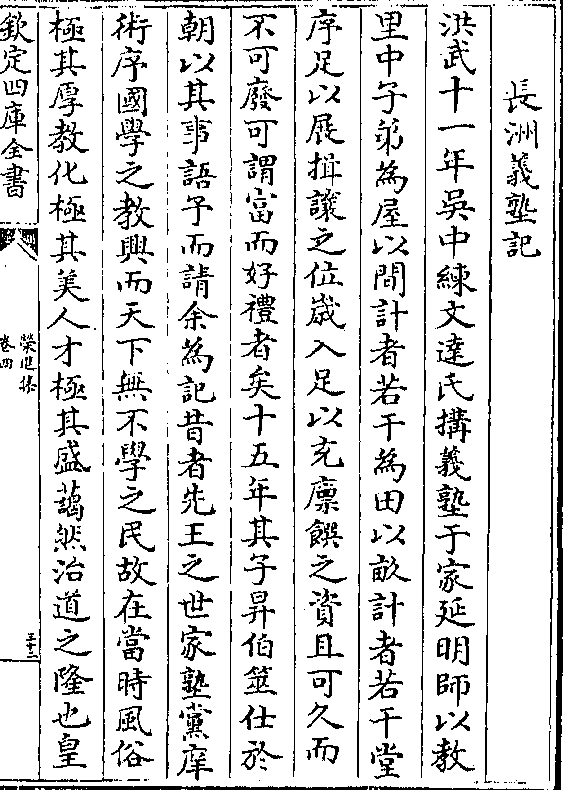 長洲義塾記
洪武十一年吳中練文達氏搆義塾于家延明師以教
里中子弟為屋以間計者若干為田以畝計者若干堂
序足以展揖讓之位歲入足以充廩饌之資且可久而
不可廢可謂富而好禮者矣十五年其子昇伯筮仕於
朝以其事語予而請余為記昔者先王之世家塾黨庠
術序國學之教興而天下無不學之民故在當時風俗
極其厚教化極其美人才極其盛藹然治道之隆也皇
欽定四庫全書
榮進集
卷四
三十二